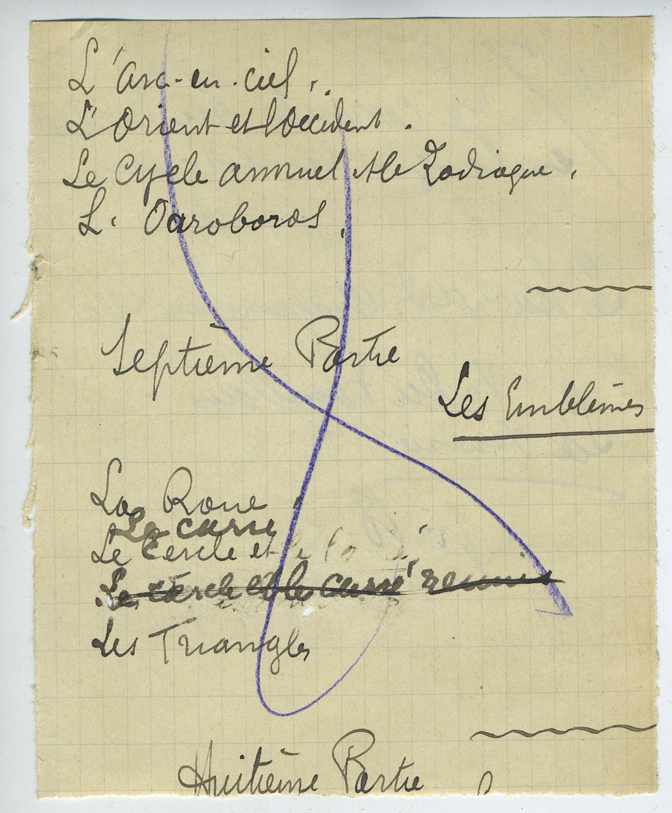 L'arc-en-ciel.
L'Orient et l'Occident.
Le Cycle annuel et le Zodiaque.
L'Ouroboros.
Septième Partie
Les Emblèmes
La Roue
Le carré
Le Cercle et le
Le cercle et le carré réunis
Les Triangles
Huitième Partie